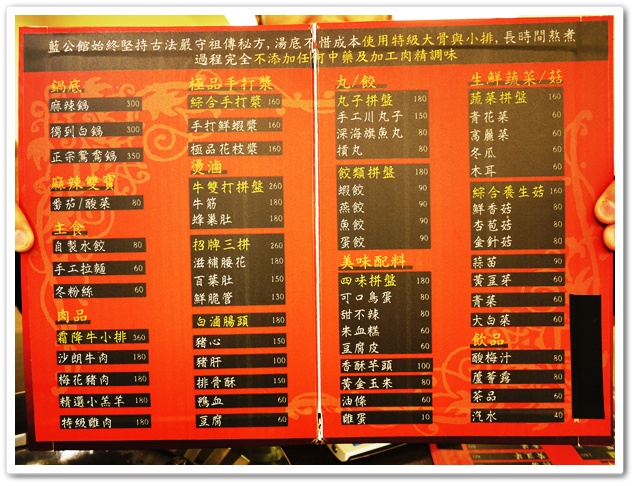 藍公館始終堅持古法嚴守祖傳秘方,湯底不惜成本使用特級大骨與小排,長時間熬煮
過程完全不添加任何中藥及加工肉精調味
鍋底
麻辣鍋 300
獨到白鍋 300
正宗鴛鴦鍋 350
麻辣雙寶
番茄/酸菜 80
主食
自製水餃 80
手工拉麵 60
冬粉絲 60
肉品
霜降牛小排 360
沙朗牛肉 180
梅花豬肉 180
精選小羔羊 180
特級雞肉 180
極品手打漿
綜合手打漿 160
手打鮮蝦漿 160
極品花枝漿 160
燙滷
牛雙打拼盤 260
牛筋 180
蜂巢肚 180
招牌三拼 260
滋補腰花 180
百葉肚 150
鮮脆管 130
白滷腸頭 180
豬心 150
豬肝 100
排骨酥 150
鴨血 60
豆腐 60
丸/餃
丸子拼盤 180
手工川丸子 150
深海旗魚丸 80
摃丸 80
餃類拼盤 180
蝦餃 90
燕餃 90
魚餃 90
蛋餃 90
美味配料
四味拼盤 180
可口鳥蛋 60
甜不辣 60
米血糕 60
豆腐皮 60
香酥芋頭 100
黃金玉米 80
油條 60
雞蛋 10
生鮮蔬菜/菇
蔬菜拼盤 160
青花菜 60
高麗菜 60
冬瓜 60
木耳 60
綜合養生菇 160
鮮香菇 80
杏苞菇 80
金針菇 80
蒜苗 90
黃豆菜 60
青菜 60
大白菜 60
飲品
酸梅汁 60
蘆薈露 60
茶品 60
汽水 40